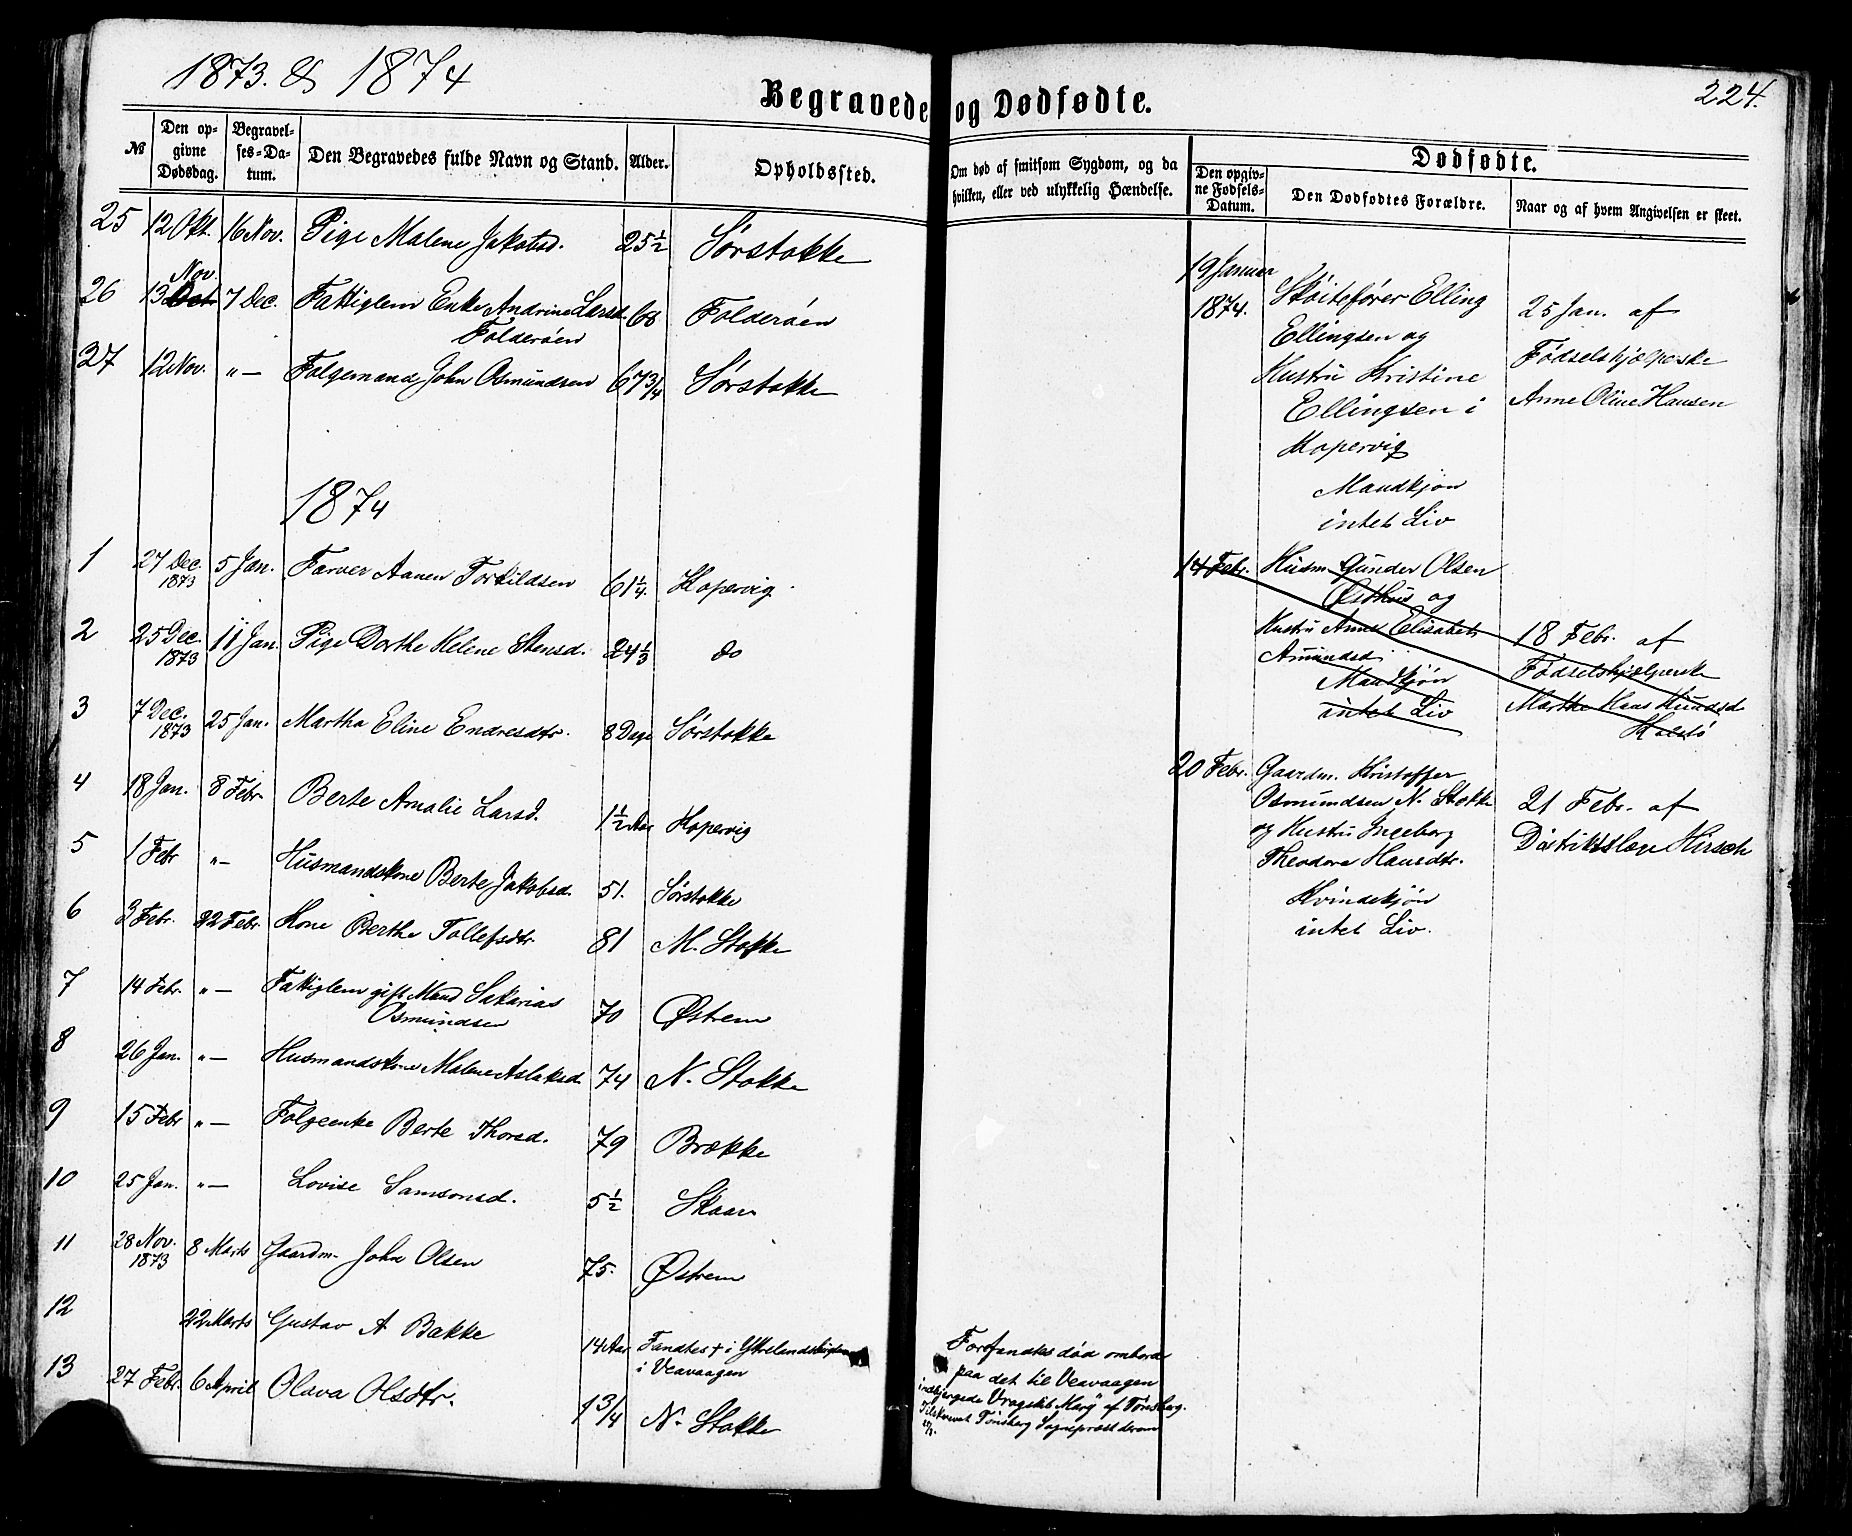 1873. & 1874
224.
Begravede og Dødfødte.
№
Den op-
givne
Dødsdag.
Begravel-
ses-Da-
tum.
Den Begravedes fulde Navn og Stand.
Alder.
Opholdssted.
Om død af smitsom Sygdom, og da
hvilken, eller ved ulykkelig Hændelse.
Dødfødte.
Den opgiv-
ne Fødsels-
Datum.
Den Dødfødtes Forældre.
Naar og af hvem Angivelsen er skeet.
25 12 Okt. 16 Nov. Pige Malene Jakobsd. 25 1/2 Sørstokke
Nov.
26 13 Oct 7 Dec. Fattiglem Enke Andrine Larsd. 68 Folderøen
Folderøen
27 12 Nov. " — Folgemand John Osmundsen 67 3/4 Sørstokke
1874
1 27 Dec. 5 Jan. Farver Aanen Torkildsen 61 1/4. Kopervig
1873
2 25 Dec. 11 Jan. Pige Dorthe Helene Stensd. 24 1/3 do
1873
3 7 Dec. 25 Jan. Martha Eline Endresdtr. 8 Dage Sørstokke
1873
4 18 Jan. 8 Febr. Berte Amalie Larsd. 1 1/2 Aar Kopervig
5 1 Febr " — Husmandskone Berte Jakobsd. 51. Sørstokke
6 3 Febr. 22 Febr. Kone Berthe Tollefsdtr. 81 M. Stokke
7 14 Febr. " — Fattiglem gift Mand Sakarias 70 Østrem
Osmundsen
8 26 Jan. " — Husmandskone Malene Aslaksd. 74 N. Stokke
9 15 Febr " — Folgeenke Berte Thorsd. 79 Brække
10 25 Jan. " — Lovise Samsonsd. 5 1/2 Skaar
11 28 Nov. 8 Marts Gaardm. John Olsen 75. Østrem
1873
12 22 Marts Gustav A Bakke 14 Aar Fandtes † i
i Veavaagen
Forfandtes død ombord
paa det til Veavaagen
indbjergede Vragskib "Mary" af Tønsberg.
Tilskrevet Tønsberg Sognepræst derom
13 27 Febr. 6 April Olava Olsdtr. 1 3/4 N. Stokke
19 Januar
1874. Skøitefører Elling
Ellingsen og
Hustru Kristine
Ellingsen i
Kopervig
Mandkjøn
intet Liv
25 Jan. af
Fødselshjælperske
Anne Oline Hansen
14 Febr. Husm. Gunder Olsen
Østhus og
Hustru Anne Elisabet
Amundsd.
Mandkjøn
intet Liv
18 Febr. af
Fødselshjælperske
Marthe Hans Knudsd
20 Febr. Gaardm. Kristoffer
Osmundsen N. Stokke
og Hustru Ingeborg
Theodora Hansdtr.
Kvindekjøn
intet Liv.
21 Febr. af
Distriktslæge Hirsch